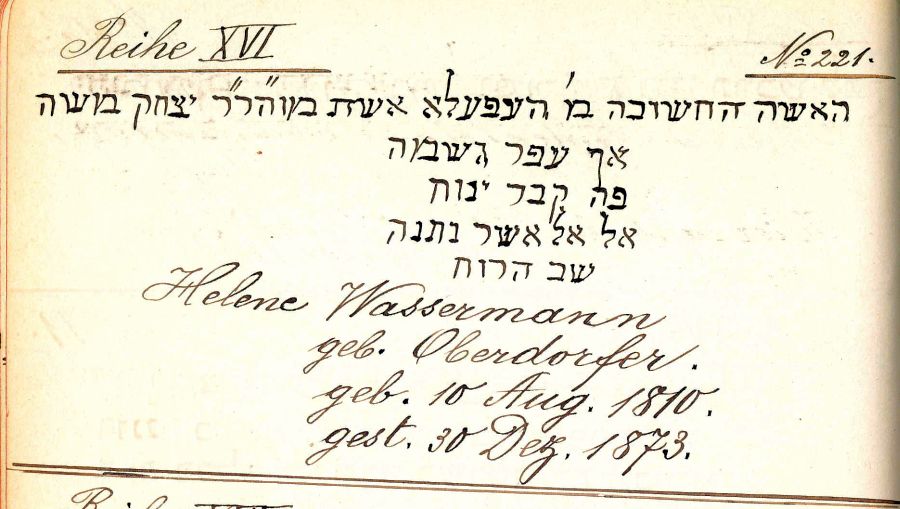 Reihe XVI
№ 221.
האשה החשובה מ' העפעלא אשת במוהר"ר יצחק משה
אך עפר גשמה
פה קבר ינוח
אל אל אשר נתנה
שב הרוח
Helene Wassermann
geb. Oberdorfer.
geb. 10 Aug. 1810.
gest. 30 Dez. 1873.
Reihe